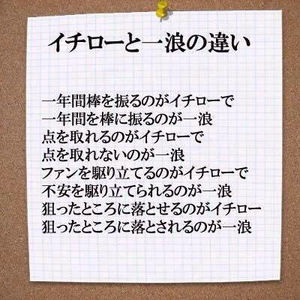 イチローと一浪の違い
一年間棒を振るのがイチローで
一年間を棒に振るのが一浪
点を取れるのがイチローで
点を取れないのが一浪
ファンを駆り立てるのがイチローで
不安を駆り立てられるのが一浪
狙ったところに落とせるのがイチロー
狙ったところに落とされるのが一浪